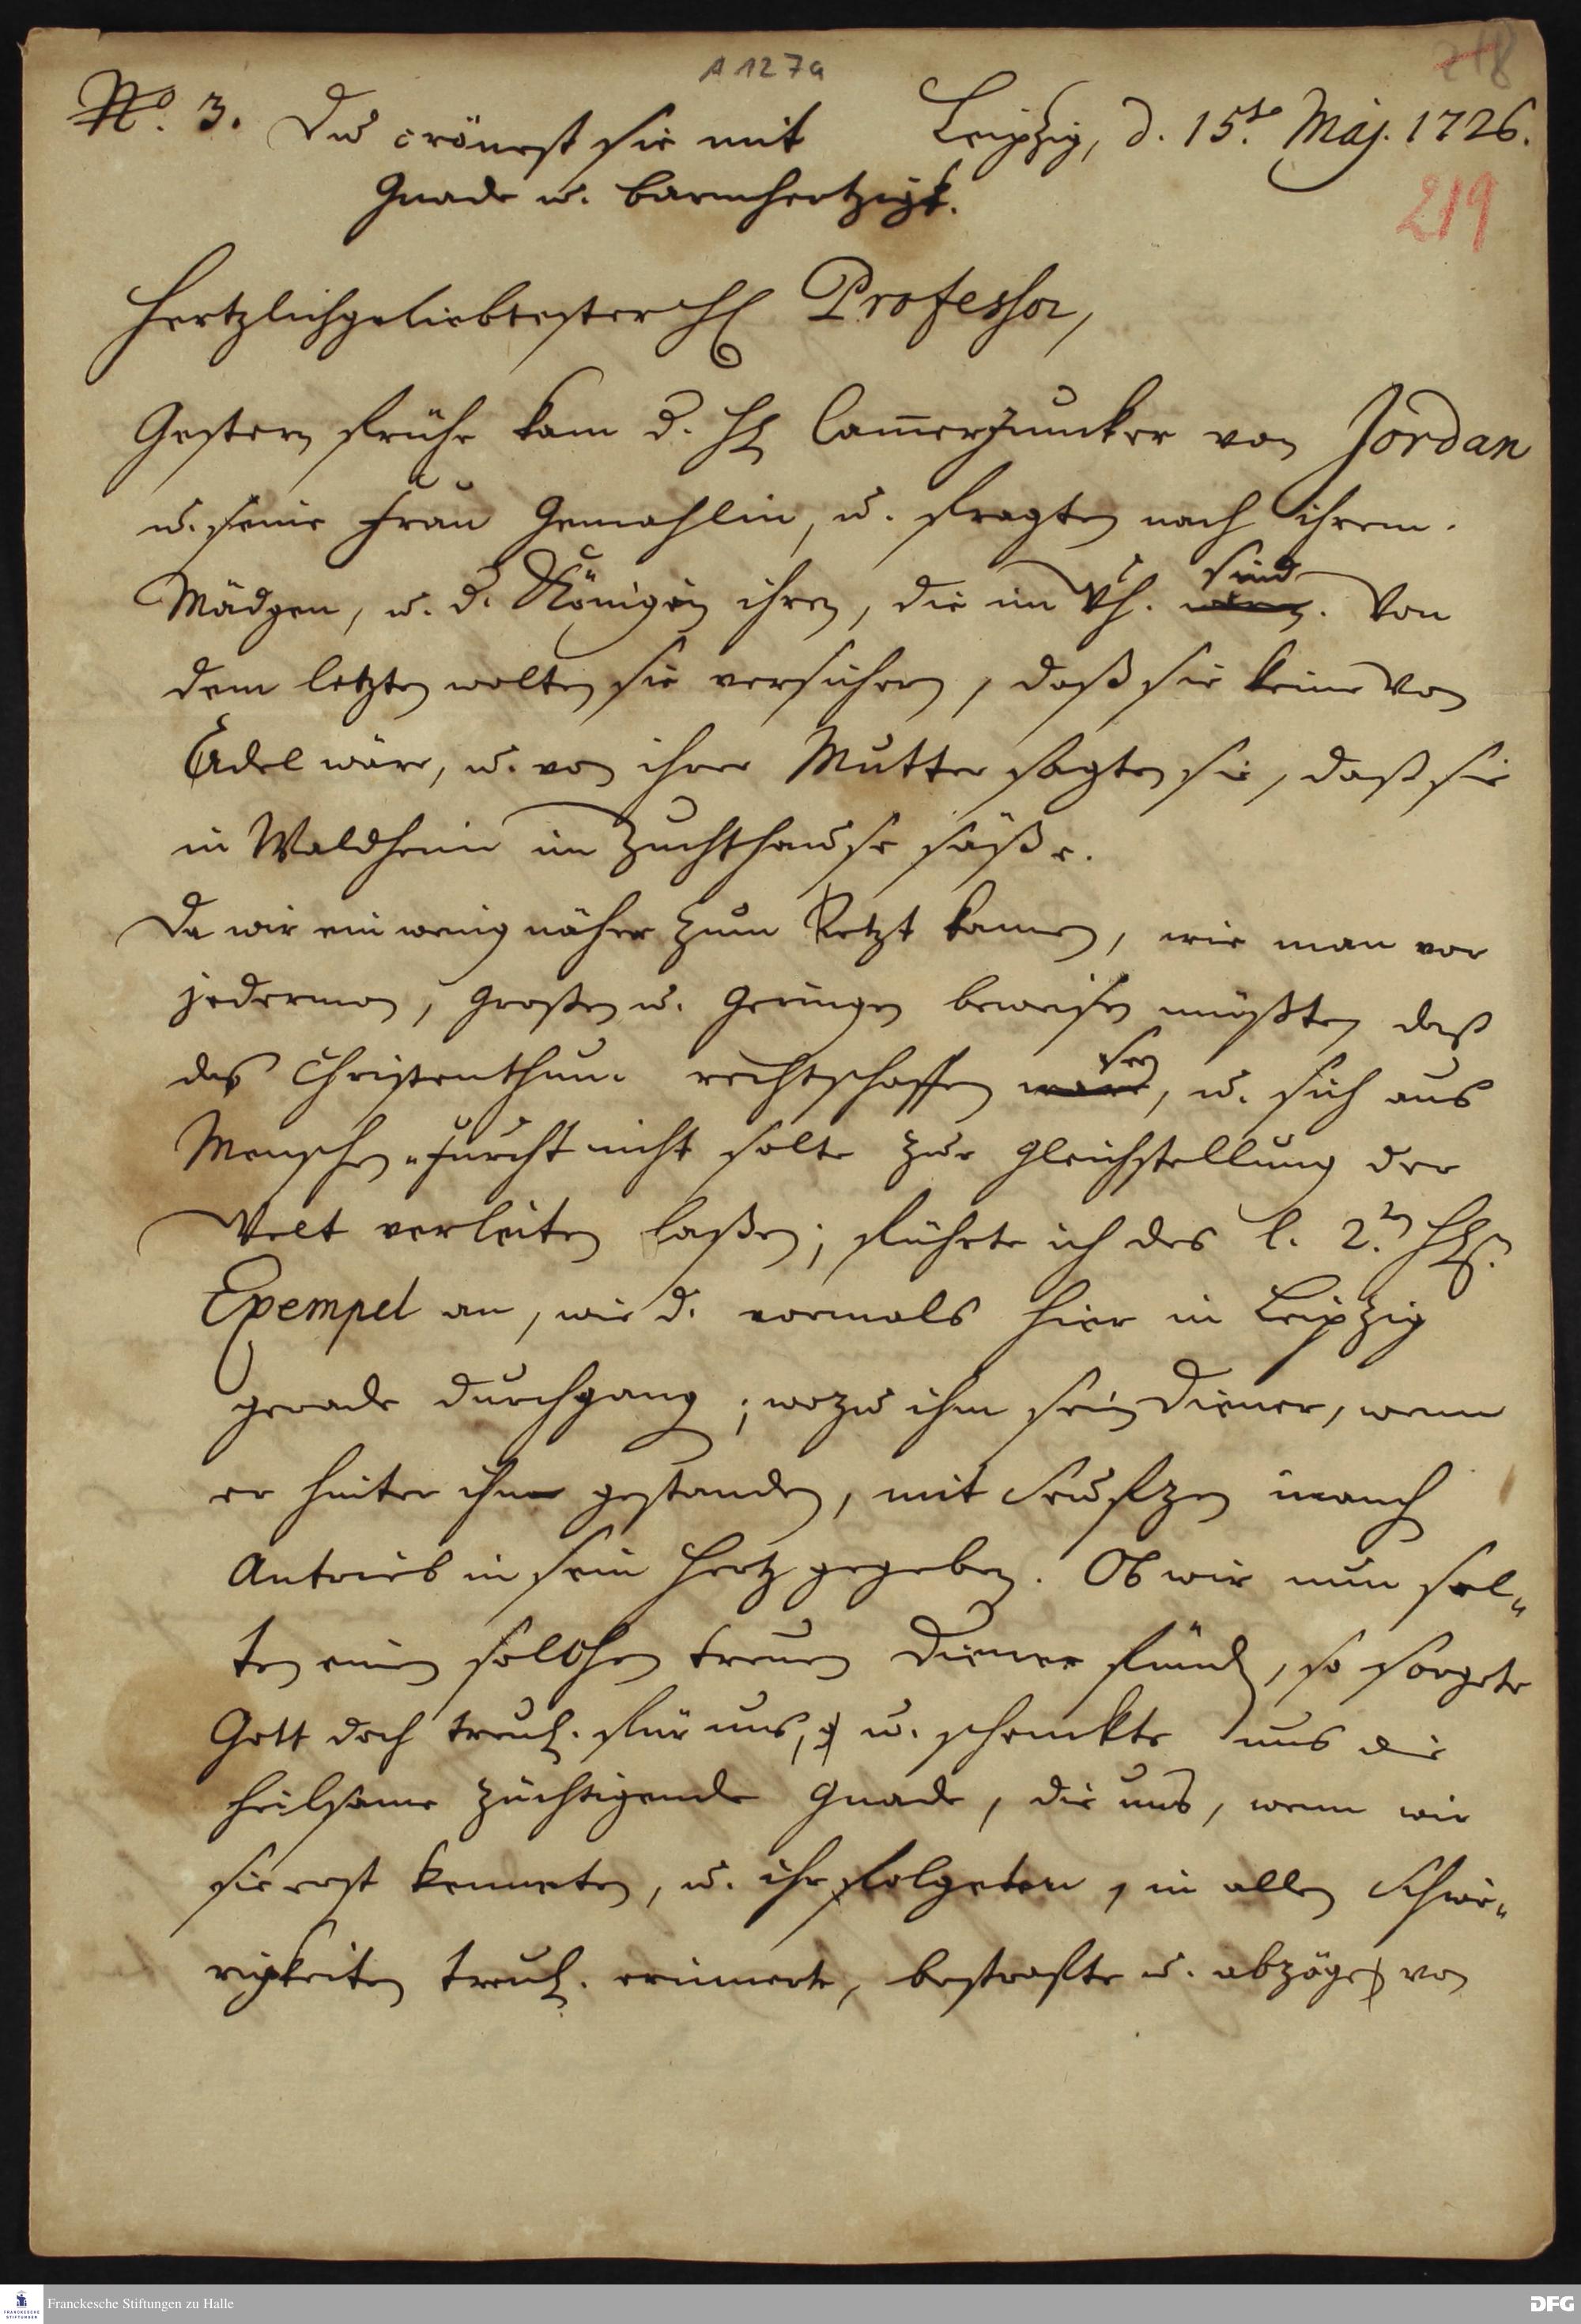 A 127a
218
No. 3. Du crönest sie mit Leipzig, d. 15te Maj. 1726.
Gnade u. Barmhertzigk.
219
Hertzlichgeliebtester H Professor,
Gestern frühe kam d. H Cammerjuncker von Jordan
u. seine Frau Gemahlin, u. fragten nach ihrem
Mädgen, u. d. Königin ihren, die im sind waren. Von
dem letzten wolten sie versichern, daß sie keine von
Adel wäre, u. von ihrer Mutter sagten sie, daß sie
in Waldheim im Zuchthause säße.
Da wir ein wenig näher zum kamen, wie man vor
jederman, Großen u. Geringen beweisen müßten daß
das Christenthum rechtschaffen wäre sey, u. sich aus
Menschen-Furcht nicht solte zur Gleichstellung der
Welt verleiten laßen; führte ich des l. 2.
Exempel an, wie d. vormals hier in Leipzig
gerade durchgang; wozu ihm sein Diener, wenn
er hinter ihm gestanden, mit Seufzen manch
Antrieb in sein Hertz gegeben. Ob wir nun sel-
ten einen solchen treuen Diener fünden, so sorgete
Gott doch treul. für uns, u. schenckte uns die
heilsame züchtigende Gnade, die uns, wenn wir
sie erst kenneten, u. ihr folgeten, in allen Schwie-
rigkeiten treul. erinnerte, bestrafte u. abzöge von
Franckesche Stiftungen zu Halle
DFG